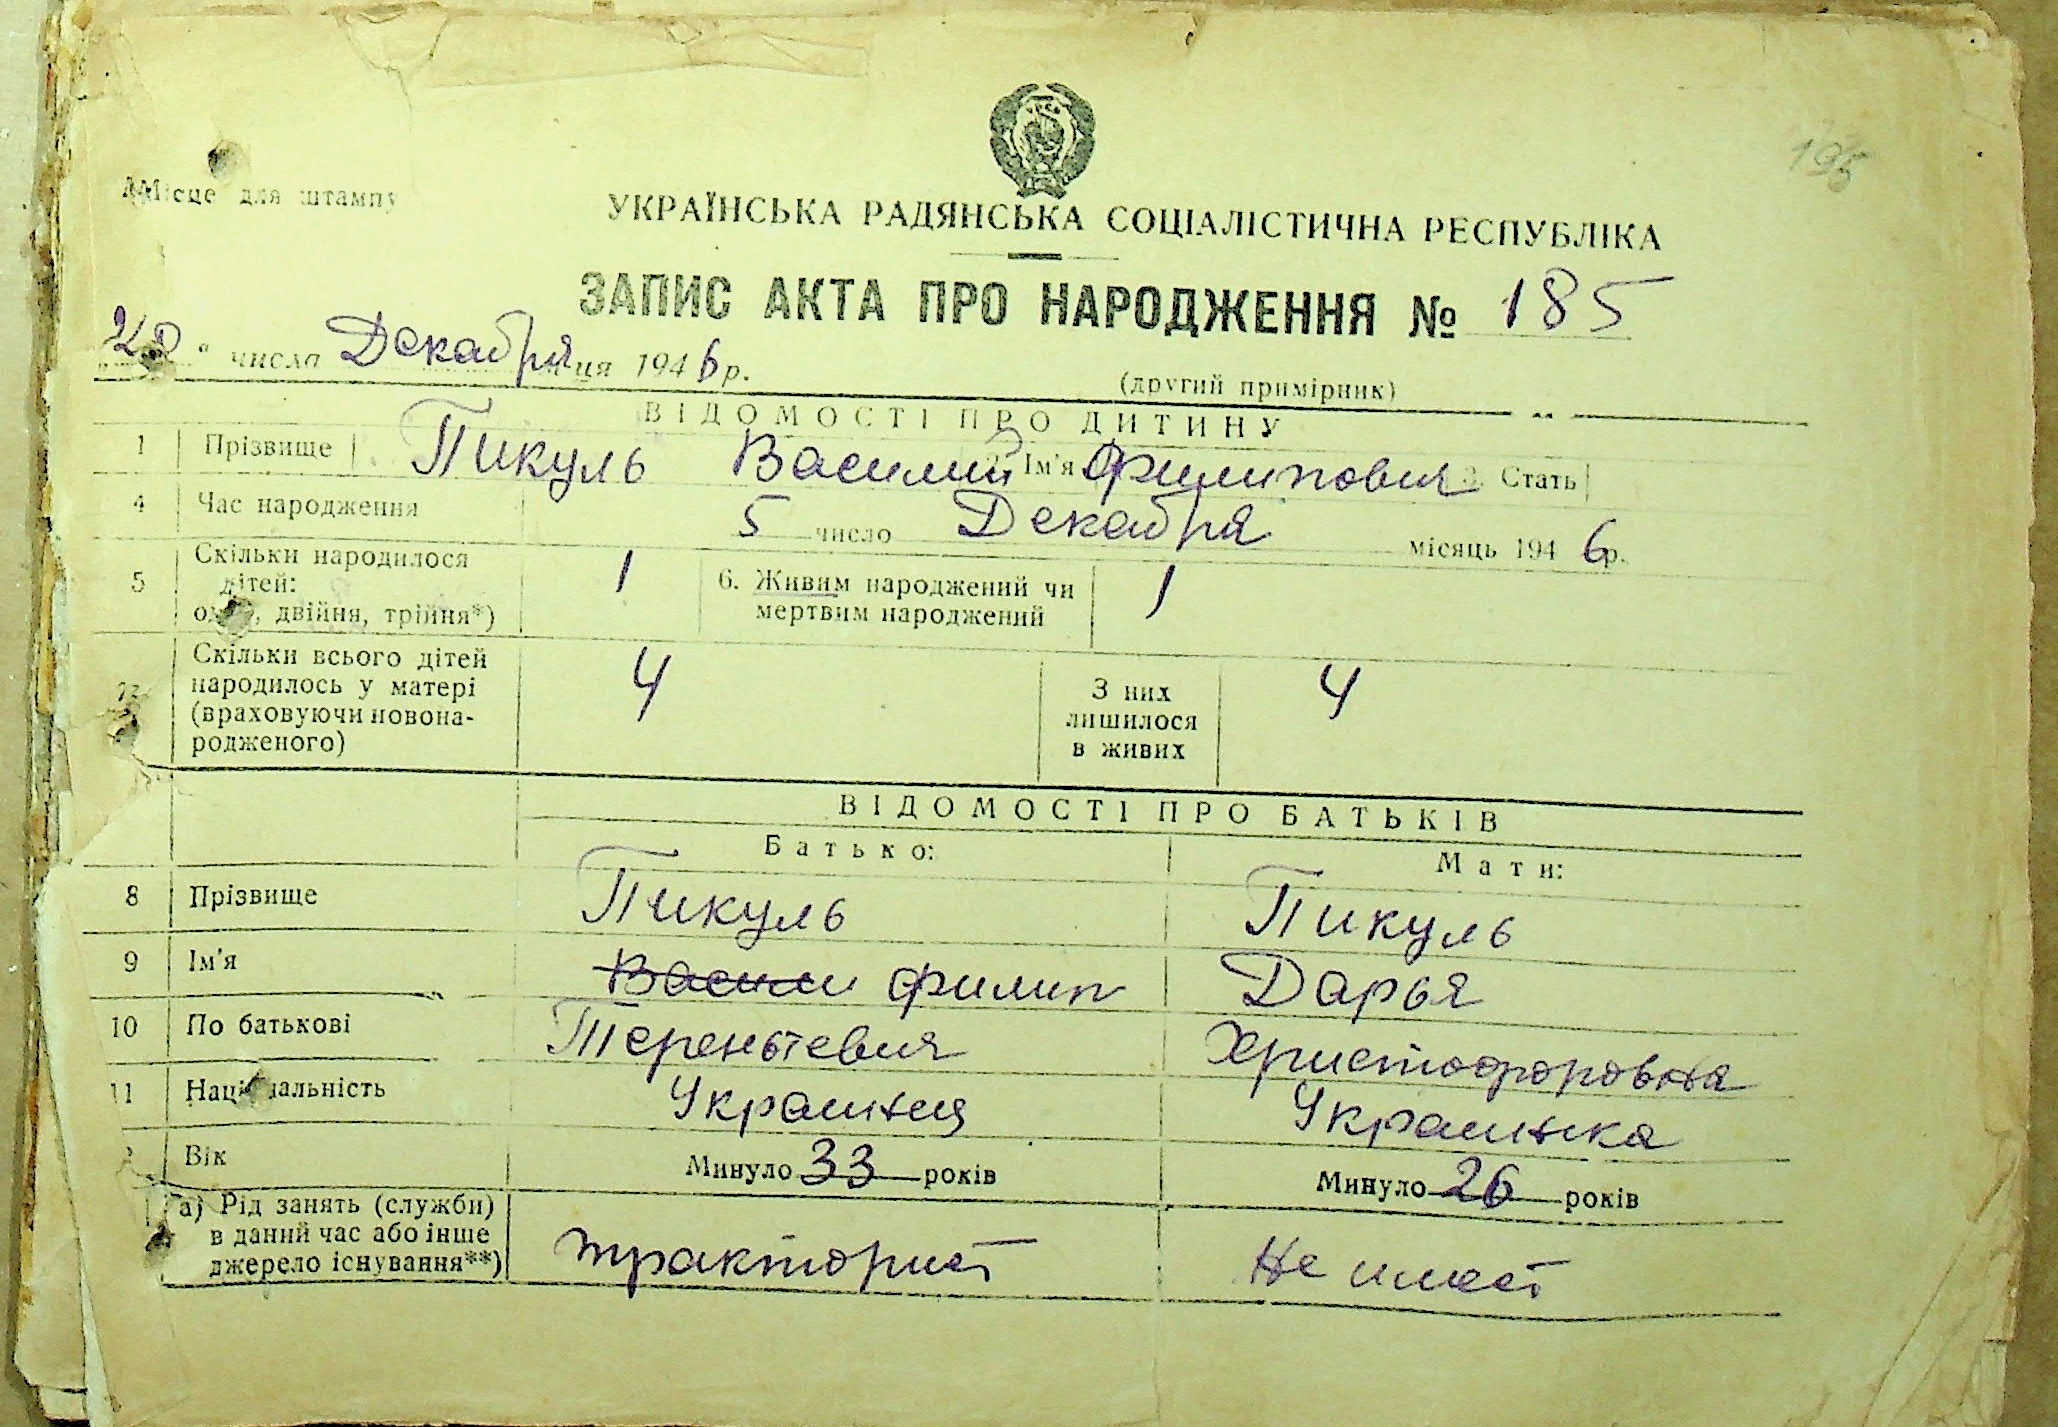 195
Місце для штампу
УКРАЇНСЬКА РАДЯНСЬКА СОЦІАЛІСТИЧНА РЕСПУБЛІКА
ЗАПИС АКТА ПРО НАРОДЖЕННЯ № 185
" числа Декабря ця 1946 р.
(другий примірник)
ВІДОМОСТІ ПРО ДИТИНУ
1 Прізвище Пикуль Василий Ім'я Филипович 3. Стать
4 Час народження 5 число Декабря місяць 1946 р.
5 Скільки народилося дітей: двійня, трійня*) 1 6. Живим народжений чи мертвим народжений 1
7 Скільки всього дітей народилось у матері (враховуючи новонародженого) 4 З них лишилося в живих 4
ВІДОМОСТІ ПРО БАТЬКІВ
Батько: Мати:
8 Прізвище Пикуль Пикуль
9 Ім'я Васили Филип Дарья
10 По батькові Терентевич Христофоровна
11 Національність Украинец Украинка
Вік Минуло 33 років Минуло 26 років
а) Рід занять (служби) в даний час або інше джерело існування**) тракторист Не имеет